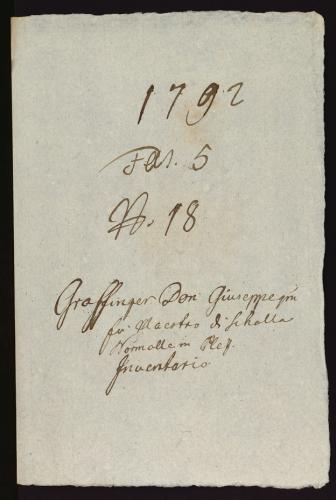 1792
Fas. 5
No. 18
Graffinger Don Giuseppe qm
fu Maestro di Scholla
Normalle in Plez.
Inventario